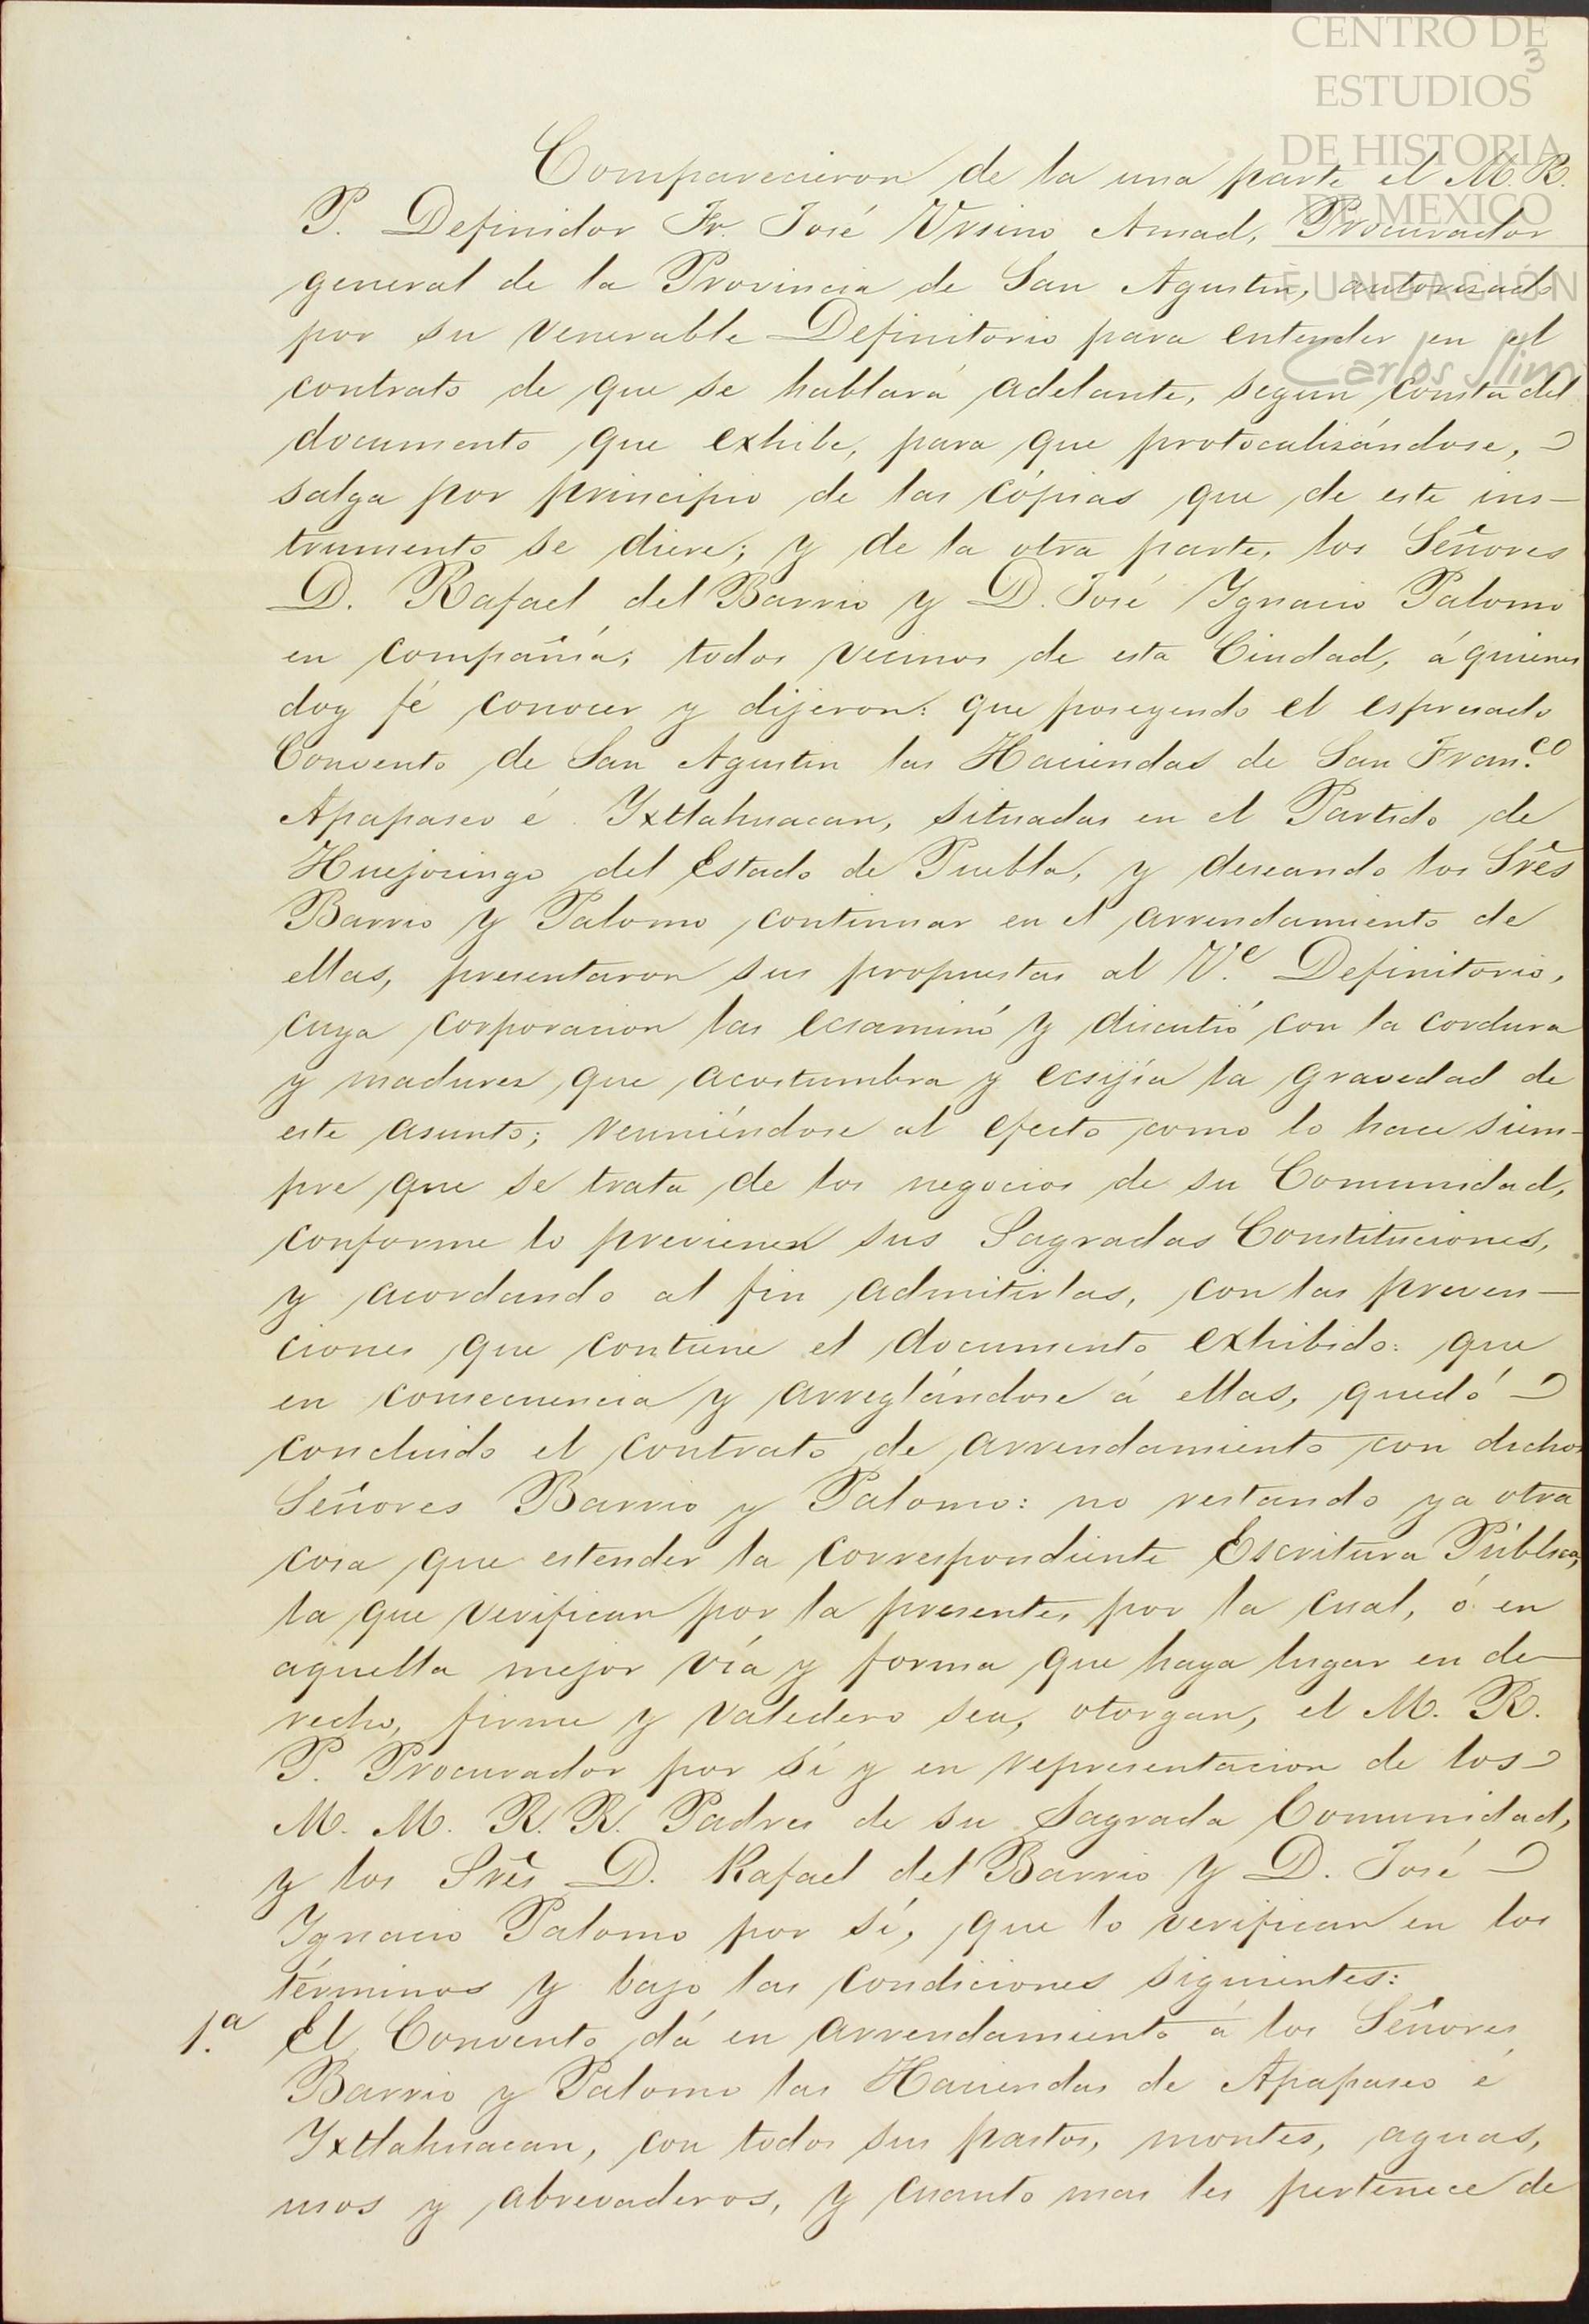 CENTRO DE
ESTUDIOS
DE HISTORIA
DE MEXICO
FUNDACIÓN
Carlos Slim
3
Comparecieron de la una parte el M. R.
P. Definidor Fr. José Ursino Amad, Procurador
general de la Provincia de San Agustin, autorisado
por su venerable Definitorio para entender en el
contrato de que se hablará adelante, segun consta del
documento que exhibe, para que protocolisándose,
salga por principio de las cópias que de este ins-
trumento se diere; y de la otra parte, los Señores
D. Rafael del Barrio y D. José Ygnacio Palomo
en compañía; todos vecinos de esta Ciudad, á quienes
doy fé conocer y dijeron: que poseyendo el espresado
Convento de San Agustin las Haciendas de San Fran.co
Apapasco é Yxtlahuacan, situadas en el Partido de
Huejocingo del Estado de Puebla, y deseando los Sres
Barrio y Palomo continuar en el arrendamiento de
ellas, presentaron sus propuestas al V.e Definitorio,
cuya corporacion las ecsaminó y discutió con la cordura
y madures que acostumbra y ecsijía la gravedad de
este asunto; reuniéndose al efecto como lo hace siem-
pre que se trata de los negocios de su Comunidad,
conforme lo previenen sus Sagradas Constituciones,
y acordando al fin admitirlas, con las preven-
ciones que contiene el documento exhibido: que
en consecuencia y arreglándose á ellas, quedó
concluido el contrato de arrendamiento con dichos
Señores Barrio y Palomo: no restando ya otra
cosa que estender la correspondiente Escritura Pública,
la que verifican por la presente, por la cual, ó en
aquella mejor vía y forma que haya lugar en de-
recho, firme y valedero sea, otorgan, el M. R.
P. Procurador por sí y en representacion de los
M. M. R. R. Padres de su Sagrada Comunidad,
y los Sres D. Rafael del Barrio y D. José
Ygnacio Palomo por sí, que lo verifican en los
términos y bajo las condiciones siguientes:
1.a El Convento dá en arrendamiento á los Señores
Barrio y Palomo las Haciendas de Apapasco é
Yxtlahuacan, con todos sus pastos, montes, aguas,
usos y abrevaderos, y cuanto mas les pertenece de